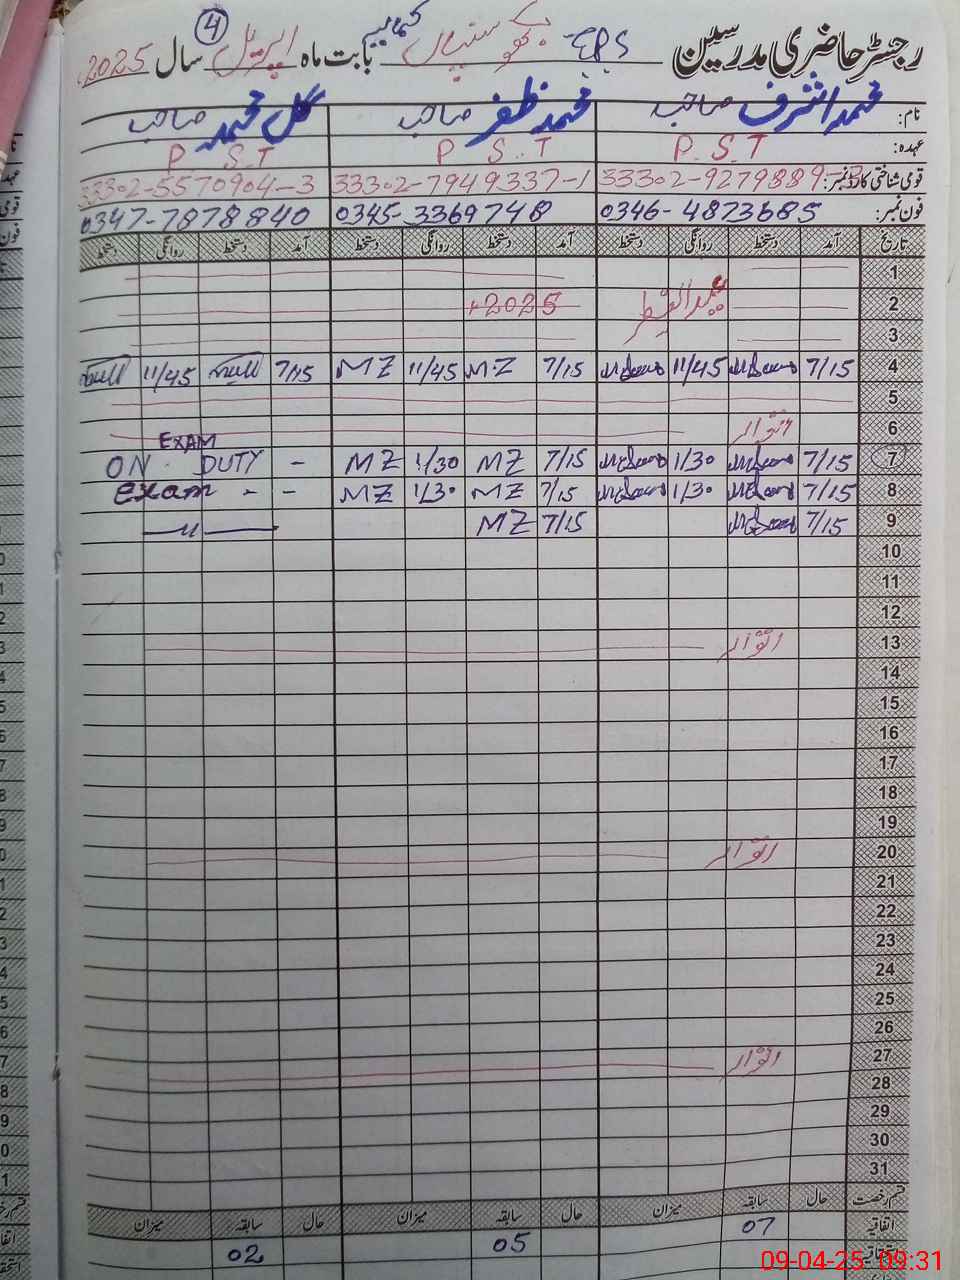 رجسٹر حاضری مدرسین GPS بھوسنیاں کمالیہ بابت ماہ اپریل 4 سال 2025
نام: محمد اشرف صاحب محمد ظفر صاحب گل محمد صاحب
عہدہ: P.S.T P S.T P S.T
قومی شناختی کارڈ نمبر: 33302-9279889- 33302-7949337-1 33302-5570904-3
فون نمبر: 0346-4873685 0345-3369748 0347-7878840
تاریخ آمد دستخط روانگی دستخط آمد دستخط روانگی دستخط آمد دستخط روانگی دستخط
1
2 عیدالفطر 2025
3
4 7/15 11/45 7/15 MZ 11/45 MZ 7/15 11/45
5
6 اتوار
7 7/15 1/30 7/15 MZ 1/30 MZ - EXAM ON DUTY
8 7/15 1/30 7/15 MZ 1/30 MZ - - Exam
9 7/15 7/15 MZ —〃—
10
11
12
13 اتوار
14
15
16
17
18
19
20 اتوار
21
22
23
24
25
26
27 اتوار
28
29
30
31
قسم رخصت حال سابقہ میزان حال سابقہ میزان حال سابقہ میزان
اتفاقیہ 07 05 02
09-04-25 09:31